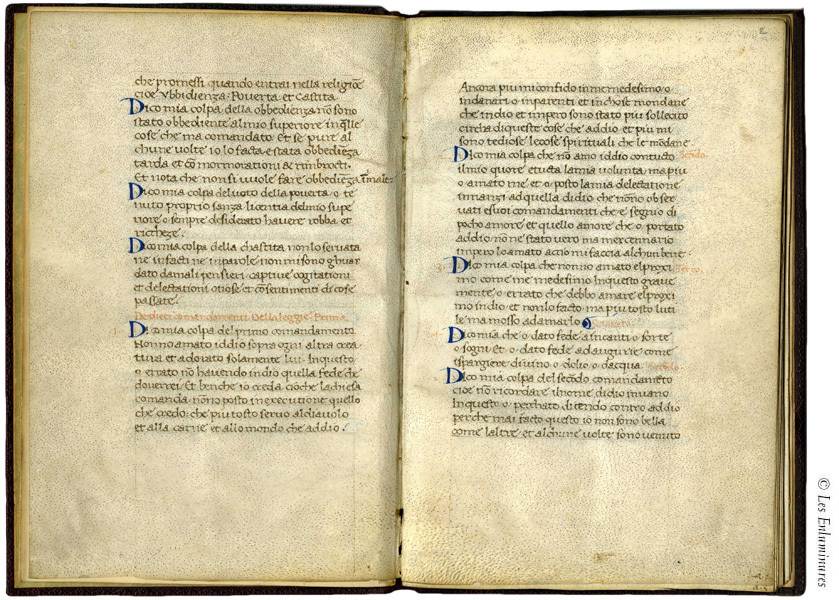 che promessi quando entrai nella religiõe
cioe Vbbidienza. Poverta. et Castita.
Dico mia colpa della obbedienza nõ sono
stato obbediente al mio superiore in q̃lle
cose che ma comandato. Et se pure al
chune volte io lo facta e stata obbediẽza
tarda et cõ mormorationi & rimbrocti.
Et nota che non si vuole fare obbediẽza
Dico mia colpa del voto della poverta. o te
nuto proprio sanza licentia del mio supe
riore. o sempre desiderato havere robba et
ricchêze.
Dico mia colpa della chastita non lo servata
ne in facti ne in parole non mi sono ghuar
dato da mali pensieri. captive cogitationi
et delectationi otiose et cõsentimenti di cose
passate.
De dieci comandamenti Della Leggie. Prima
Dico mia colpa del primo comandamento
Non no amato iddio sopra ogni altra crea
tura et adorato solamente lui. In questo
o errato nõ havendo in dio quella fede che
doverrei. Et benche io creda cioche la chiesa
comanda. nõ no posto in executione quello
che credo: che piu tosto servo al diavolo
et alla carne et al lo mondo che addio.
2
Ancora piu mi confido in me medesimo. o
in danari. o in parenti et in chose mondane
che in dio et impero sono stato piu sollecito
circha di queste cose che addio. et piu mi
sono tediose le cose spirituali che le mõdane
Dico mia colpa che nõ amo iddio con tucto
il mio quore et tucta la mia volunta. ma piu
o amato me et o posto la mia delectatione
innanzi ad quella di dio che nõ no obser
vati e suoi comandamenti che e segnio di
pocho amore et quello amore che o portato
addio. nõ ne stato vero ma mercennario
impero lo amato acio mi faccia alchun bene.
Dico mia colpa che non no amato el proxi
mo come me medesimo. In questo grave
mente. o errato che debbo amare el proxi
mo in dio et non lo facto ma piu tosto luti
le ma mosso ad amarlo
Dico mia che o dato fede a incanti o sorte
o sogni. Et o dato fede ad augurie come
ispargiere di vino. o dolio. o dacqua.
Dico mia colpa del secõdo comandamẽto
cioe nõ ricordare il nome di dio in vano
In questo o pecchato dicendo contro addio
perche mai facto questo io non sono bella
come laltre. et alchune volte sono venuto
© Les Enluminures